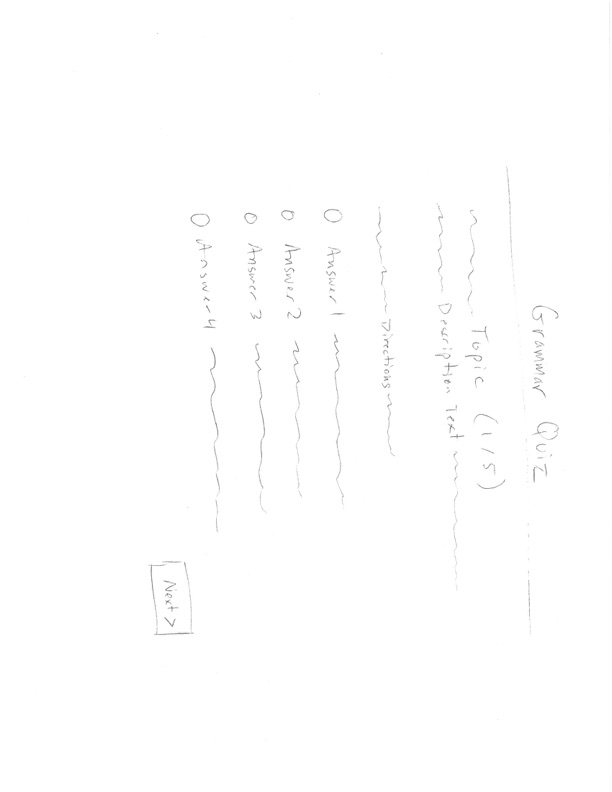 Grammar Quiz
Topic (1/5)
Description Text
Directions
Answer 1
Answer 2
Answer 3
Answer 4
Next >